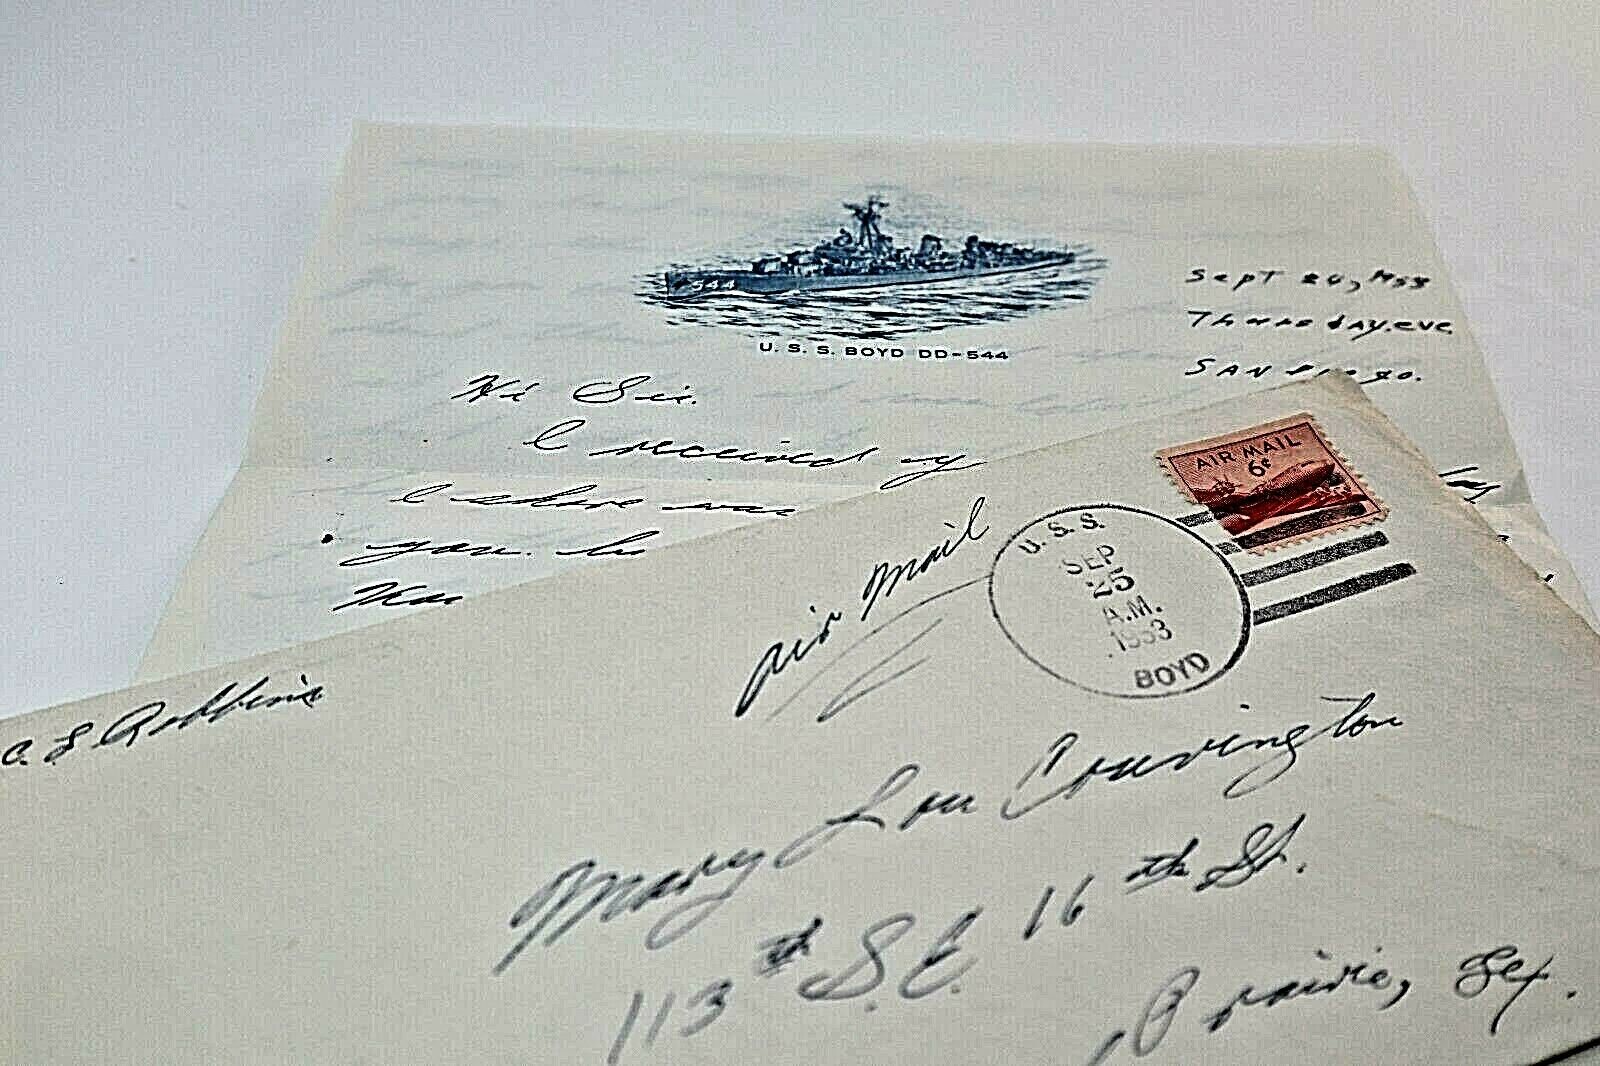 544
U. S. S. BOYD DD-544
Sept 24, 1953
Thursday.eve.
SAN Diego.
Hi Sis.
I received
I
you.
AIR MAIL
6¢
Air Mail
U.S.S.
SEP
25
A.M.
1953
BOYD
C. L. Robbins
Mary Lou Couvington
113th S.E. 16th St.
Prairie, Tex.